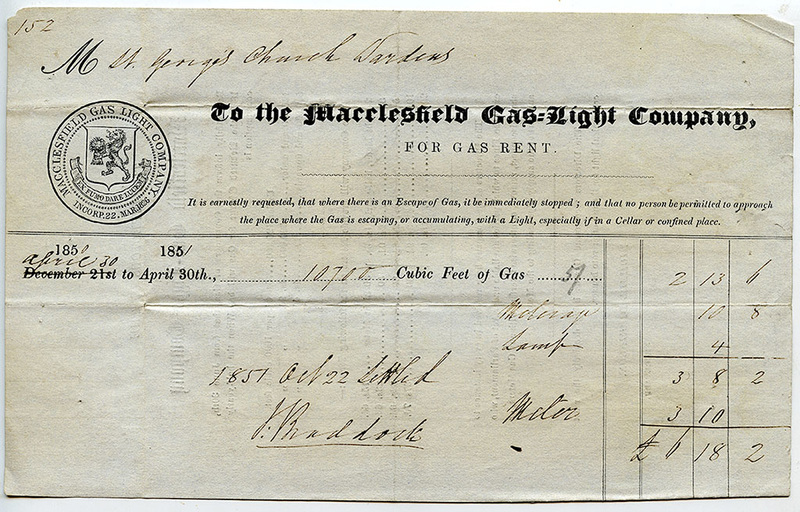 152
M St. George's Church Wardens
MACCLESFIELD GAS LIGHT COMPANY
EX FUMO DARE LUCEM
INCORP. 22. MAR. 1826
To the Macclesfield Gas=Light Company,
FOR GAS RENT.
It is earnestly requested, that where there is an Escape of Gas, it be immediately stopped; and that no person be permitted to approach
the place where the Gas is escaping, or accumulating, with a Light, especially if in a Cellar or confined place.
1850 1851
April 30
December 21st to April 30th., 10700 Cubic Feet of Gas 5/ 2 13 6
10 8
Lamp 4
1851 Oct 22 Settled 3 8 2
J. Braddock Meter 3 10
£ 6 18 2